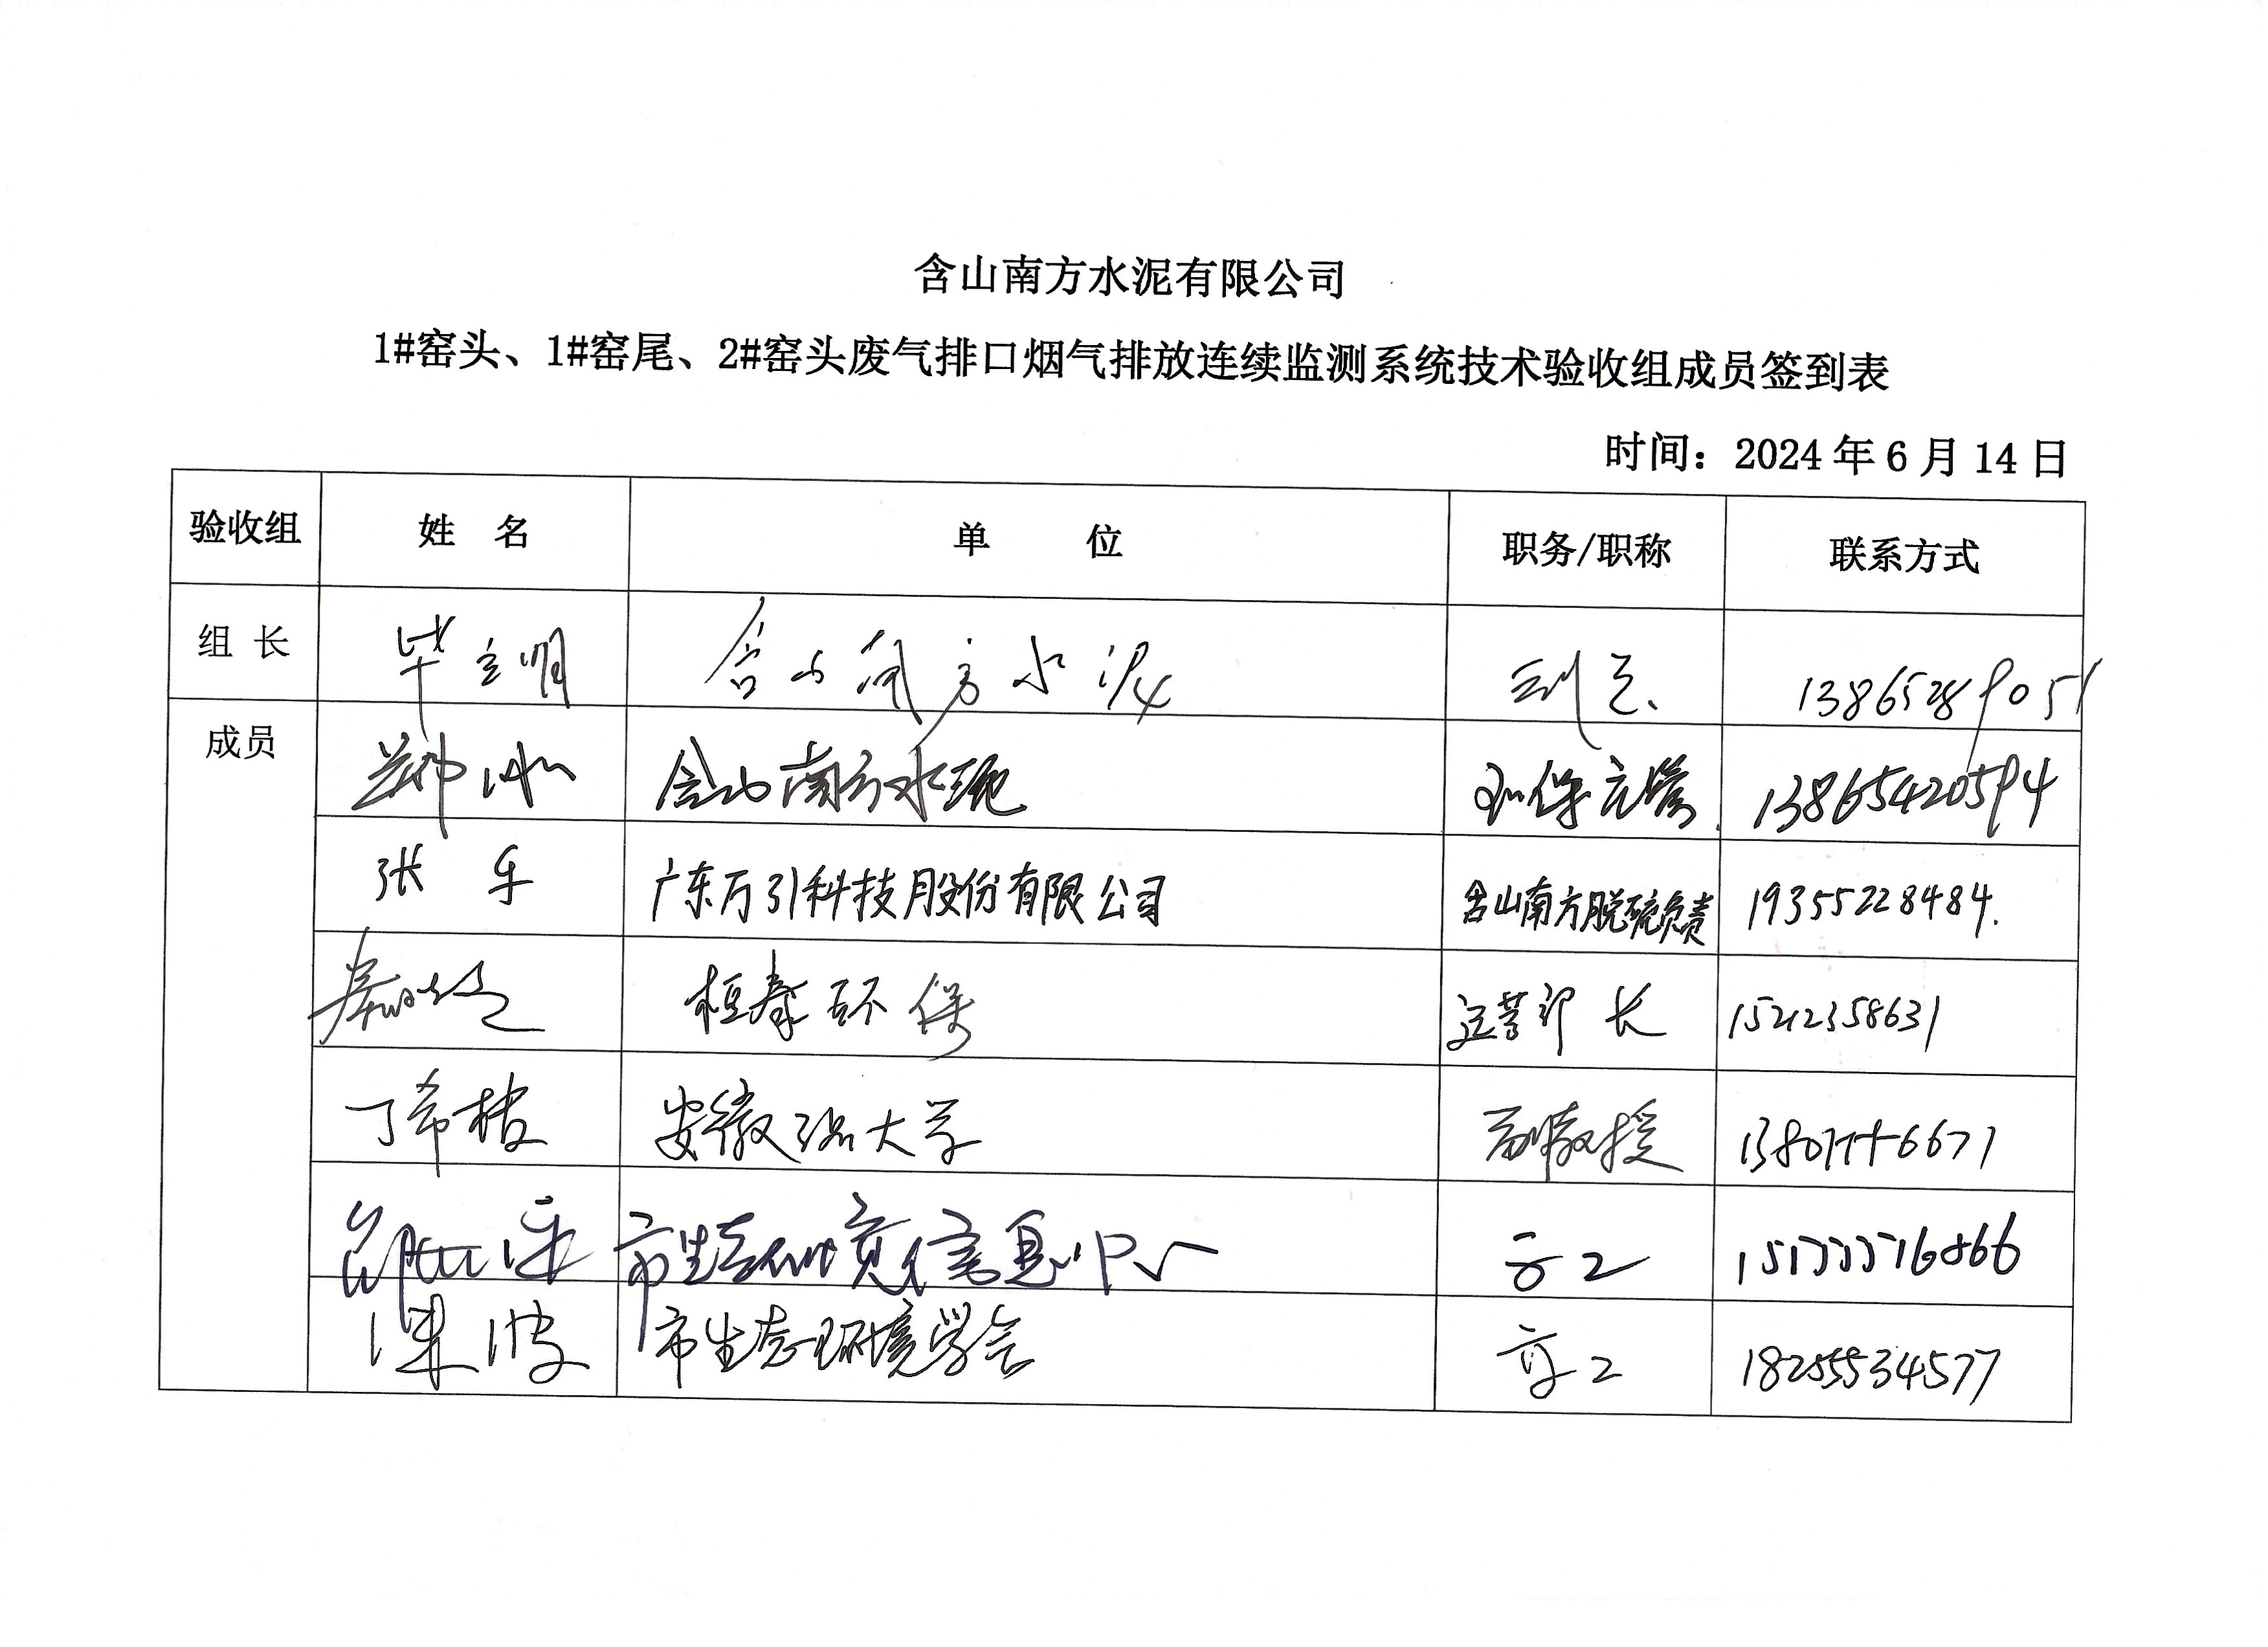 含山南方水泥有限公司
1#窑头、1#窑尾、2#窑头废气排口烟气排放连续监测系统技术验收组成员签到表
时间：2024年6月14日
验收组 姓 名 单 位 职务/职称 联系方式
组 长 毕立明 含山南方水泥 副总
成员 郑 含山南方水泥 13865420594
张乐 广东万引科技股份有限公司 含山南方脱硫负责 19355228484.
桓泰环保 运营部长 15212358631
丁希楼 安徽工业大学 副教授
市生态环境信息中心 高工
梁波 市生态环境学会 高工 18255534577